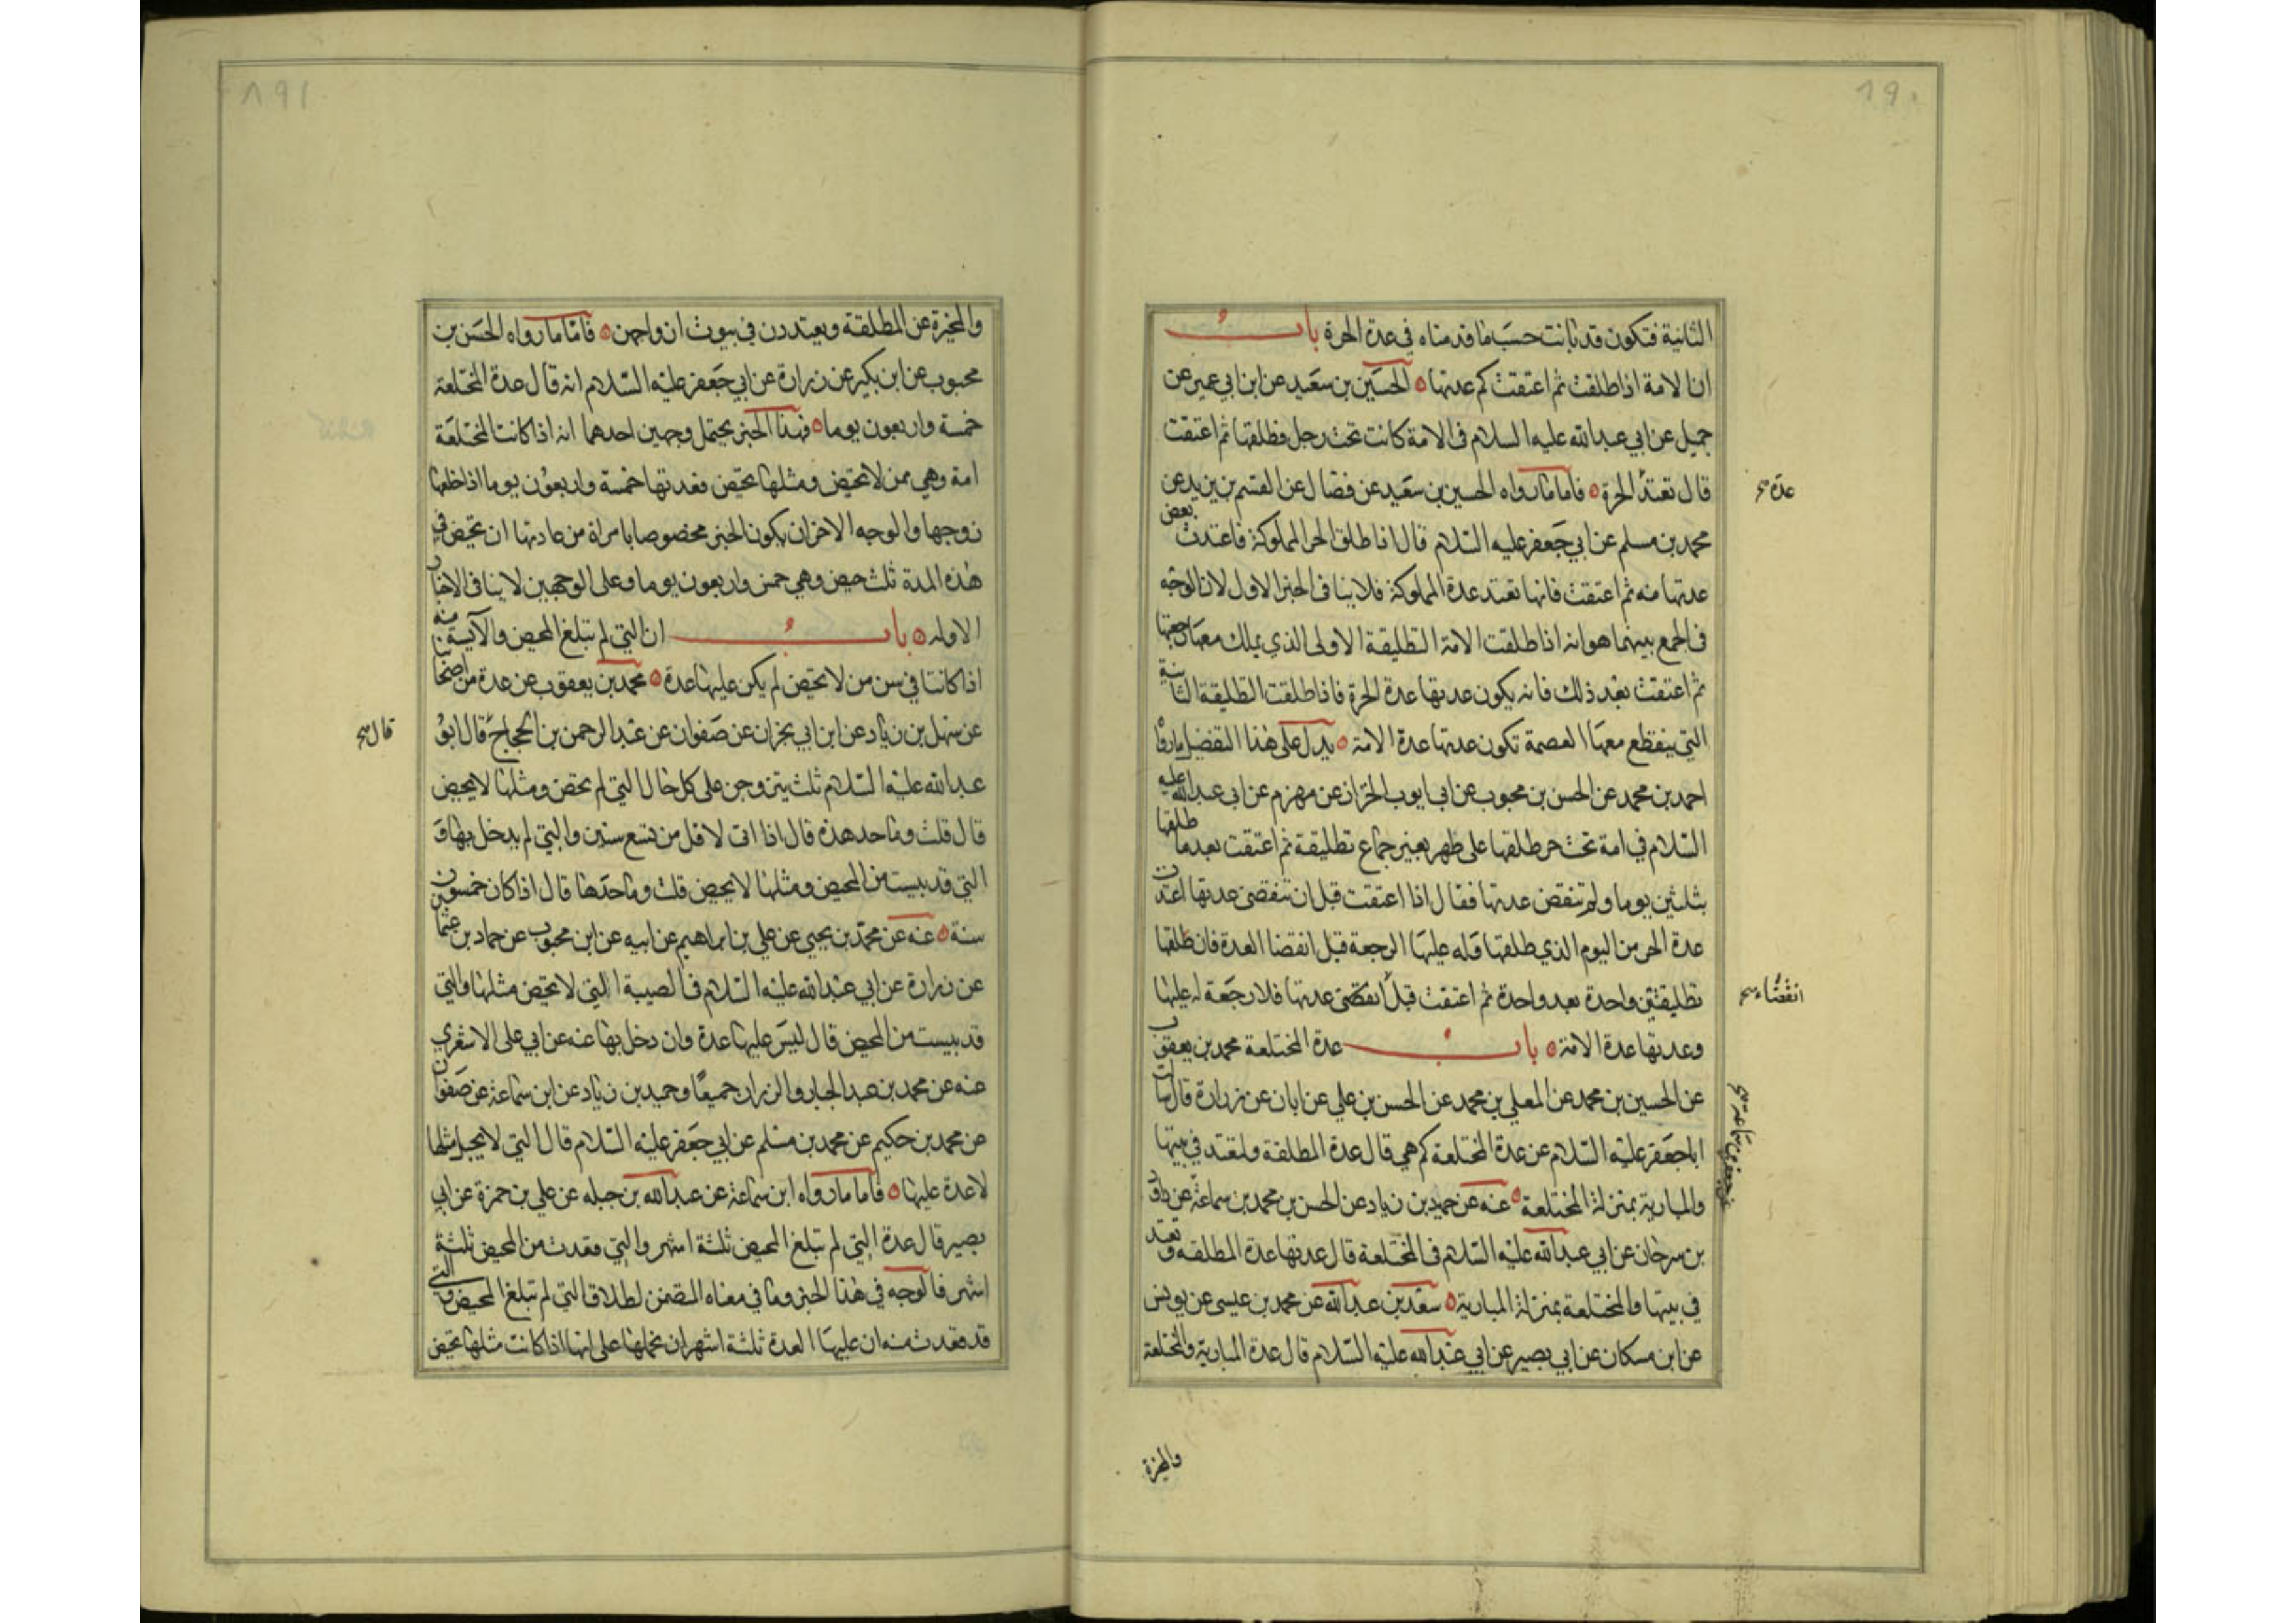 ١٩٠
الثانية فتكون قد بانت حسب ما قدمناه في عدة الحرة باب
ان الامة اذا طلقت ثم اعتقت كم عدتها الحسين بن سعيد عن ابن ابي عمير عن
جميل عن ابي عبدالله عليه السلام في الامة كانت تحت رجل فطلقها ثم اعتقت
قال تعتد الحرة فاما ما رواه الحسين بن سعيد عن فضال عن القسم بن يزيد عن
عدة صح
محمد بن مسلم عن ابي جعفر عليه السلام قال اذا طلق الحر المملوكة فاعتدت بعض
عدتها منه ثم اعتقت فانها تعتد عدة المملوكة فلا ينافى الخبر الاول لان الوجه
في الجمع بينهما هو انه اذا طلقت الامة التطليقة الاولى الذي يملك معها رجعتها
ثم اعتقت بعد ذلك فانه يكون عدتها عدة الحرة فاذا طلقت التطليقة الثانية
التي ينقطع معها العصمة تكون عدتها عدة الامة يدل على هذا التفصيل ما رواه
احمد بن محمد عن الحسن بن محبوب عن ابى ايوب الخزاز عن مهزم عن ابى عبدالله عليه
السلام في امة تحت حر طلقها على طهر بغير جماع تطليقة ثم اعتقت بعد ما طلقها
بثلثين يوما ولم تنقض عدتها فقال اذا اعتقت قبل ان تنقضى عدتها اعتدت
عدة الحر من اليوم الذي طلقها وله عليها الرجعة قبل انقضا العدة فان طلقها
تطليقتين واحدة بعد واحدة ثم اعتقت قبل انقضى عدتها فلا رجعة له عليها
انقضاء صح
وعدتها عدة الامة باب عدة المختلعة محمد بن يعقوب
عن الحسين بن محمد عن المعلى بن محمد عن الحسن بن علي عن ابان عن زرارة قال سالت
ابا جعفر عليه السلام عن عدة المختلعة كم هي قال عدة المطلقة ولتعتد في بيتها
والمبارية بمنزلة المختلعة عنه عن حميد بن زياد عن الحسن بن محمد بن سماعة عن داود
عن جعفر بن سماعة صح
بن سرحان عن ابي عبدالله عليه السلام في المختلعة قال عدتها عدة المطلقه وتعتد
في بيتها والمختلعة بمنزلة المبارية سعد بن عبدالله عن محمد بن عيسى عن يونس
عن ابن مسكان عن ابي بصير عن ابي عبدالله عليه السلام قال عدة المبارية والمختلعة
والمخيرة
١٩١
والمخيرة عن المطلقة ويعتددن في بيوت ازواجهن فاما ما رواه الحسن بن
محبوب عن ابن بكير عن زرارة عن ابي جعفر عليه السلام انه قال عدة المختلعة
خمسة واربعون يوما فهذا الخبر يحتمل وجهين احدهما انه اذا كانت المختلعة
امة وهي ممن لا تحيض ومثلها تحيض فعدتها خمسة واربعون يوما اذا خلعها
زوجها والوجه الاخر ان يكون الخبر مخصوصا بامراة من عادتها ان تحيض في
هذه المدة ثلث حيض وهي خمس واربعون يوما وعلى الوجهين لا ينافى الاخبار
الاوله باب ان التي لم تبلغ المحيض والآيسة منه
اذا كانتا في سن من لا تحيض لم يكن عليها عدة محمد بن يعقوب عن عدة من اصحابنا
عن سهل بن زياد عن ابن ابي نجران عن صفوان عن عبد الرحمن بن الحجاج قال ابو
قال صح
عبدالله عليه السلام ثلث يتزوجن على كل حال التي لم تحض ومثلها لا يحيض
قال قلت وما حد هذه قال اذا اتى لاقل من تسع سنين والتي لم يدخل بها و
التي قد يبست من المحيض ومثلها لا يحيض قلت وما حدها قال اذا كان خمسون
سنة عنه عن محمد بن يحيى عن علي بن ابراهيم عن ابيه عن ابن محبوب عن حماد بن عثمان
عن زرارة عن ابي عبدالله عليه السلام في الصبية التي لا تحيض مثلها والتي
قد يبست من المحيض قال ليس عليها عدة وان دخل بها عنه عن ابي على الاشعري
عنه عن محمد بن عبد الجبار والرزاز جميعا وحميد بن زياد عن ابن سماعة عن صفوان
عن محمد بن حكيم عن محمد بن مسلم عن ابي جعفر عليه السلام قال التي لا يحبل مثلها
لا عدة عليها فاما ما رواه ابن سماعة عن عبدالله بن جبله عن علي بن حمزة عن ابي
بصير قال عدة التي لم تبلغ المحيض ثلثة اشهر والتي قعدت من المحيض ثلثة
اشهر فالوجه في هذا الخبر وما في معناه المتضمن لطلاق التي لم تبلغ المحيض والتى
قد قعدت منه ان عليها العدة ثلثة اشهر ان نحملها على انها اذا كانت مثلها تحيض